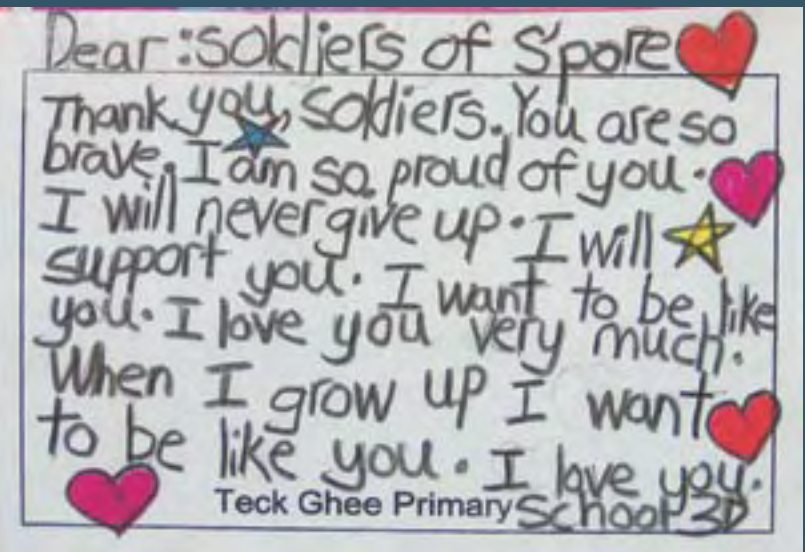 Dear: soldiers of S'pore
Thank you, soldiers. You are so
brave. I am so proud of you.
I will never give up. I will
support you. I want to be like
you. I love you very much.
When I grow up I want
to be like you. I love you.
Teck Ghee Primary School 3D